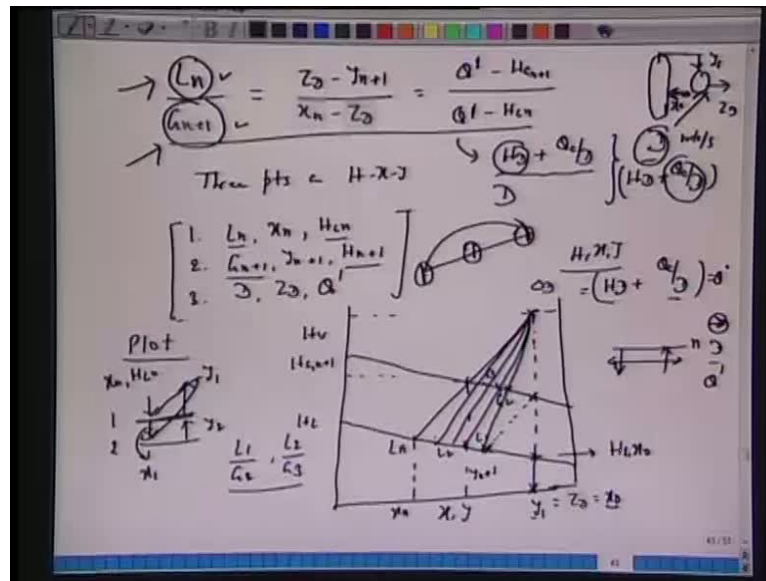 Ln / Gn+1 = ZD - yn+1 / xn - ZD = Q' - HGn+1 / Q' - HLn
y1
ZD
HD + Qc/D
D
(HD + Qc/D)
Three pts on H-x-y
1. Ln, xn, HLn
2. Gn+1, yn+1, Hn+1
3. D, ZD, Q'
H, x, y
= (HD + Qc/D) = Q'
ΔD
n
D
Q'
Plot
xn, HLn
y1
1
y2
2
x1
L1/G2, L2/G3
Hv
HG,n+1
HL
Ln
yn+1
HL, xD
xn
x, y
y1 = ZD = xD
43/51
43